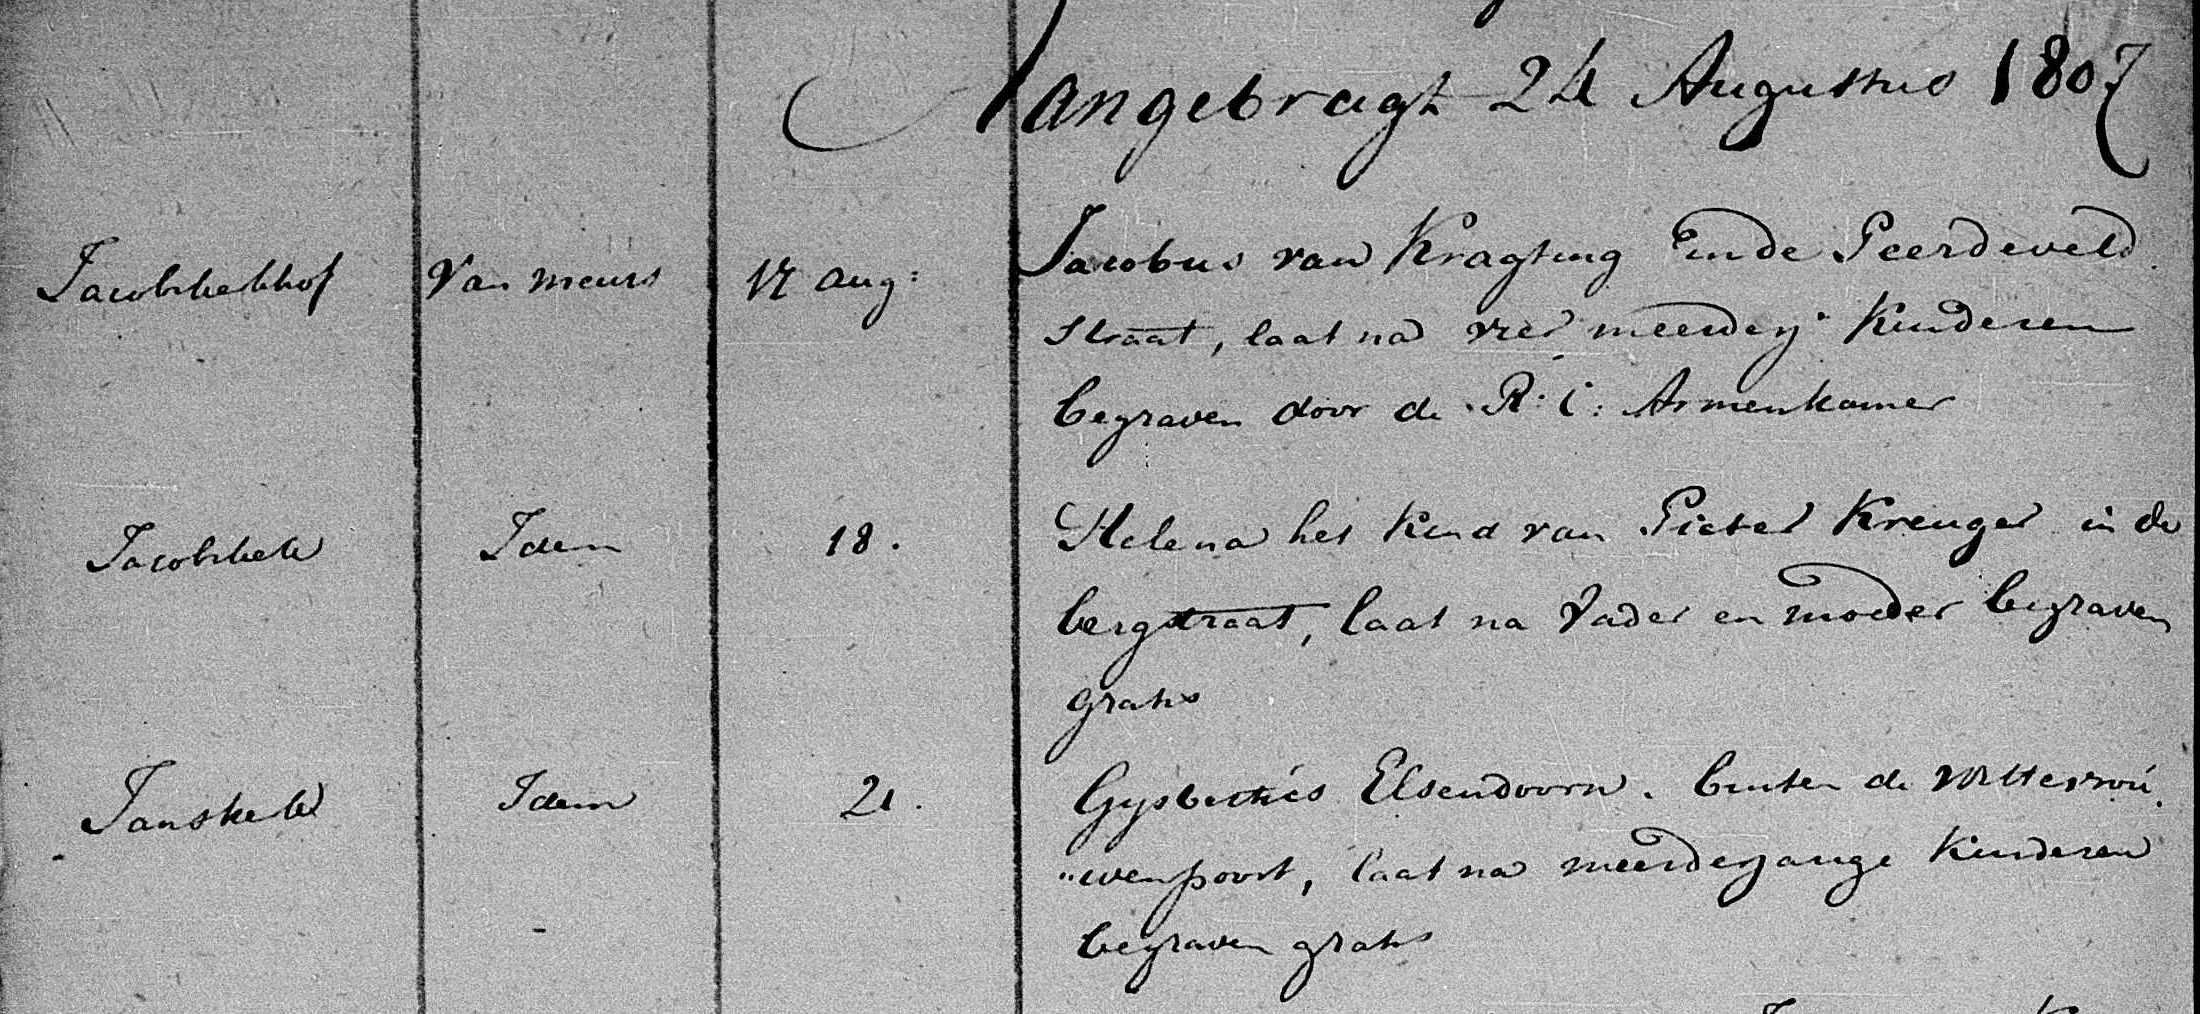 Aangebragt 24 Augustus 1807
Jacobikerkhof Van meurs 17 aug: Jacobus van Kragting Einde Peerdeveld
straat, laat na vier meerderj: Kinderen
begraven door de R: C: Armenkamer
Jacobikerk Idem 18. Helena het Kind van Pieter Kreuger in de
bergstraat, laat na Vader en moeder begraven
gratis
Janskerk Idem 21. Gysbertus Elsendoorn. buiten de Wittevrou,
"wenpoort, laat na meerderjarige Kinderen
begraven gratis